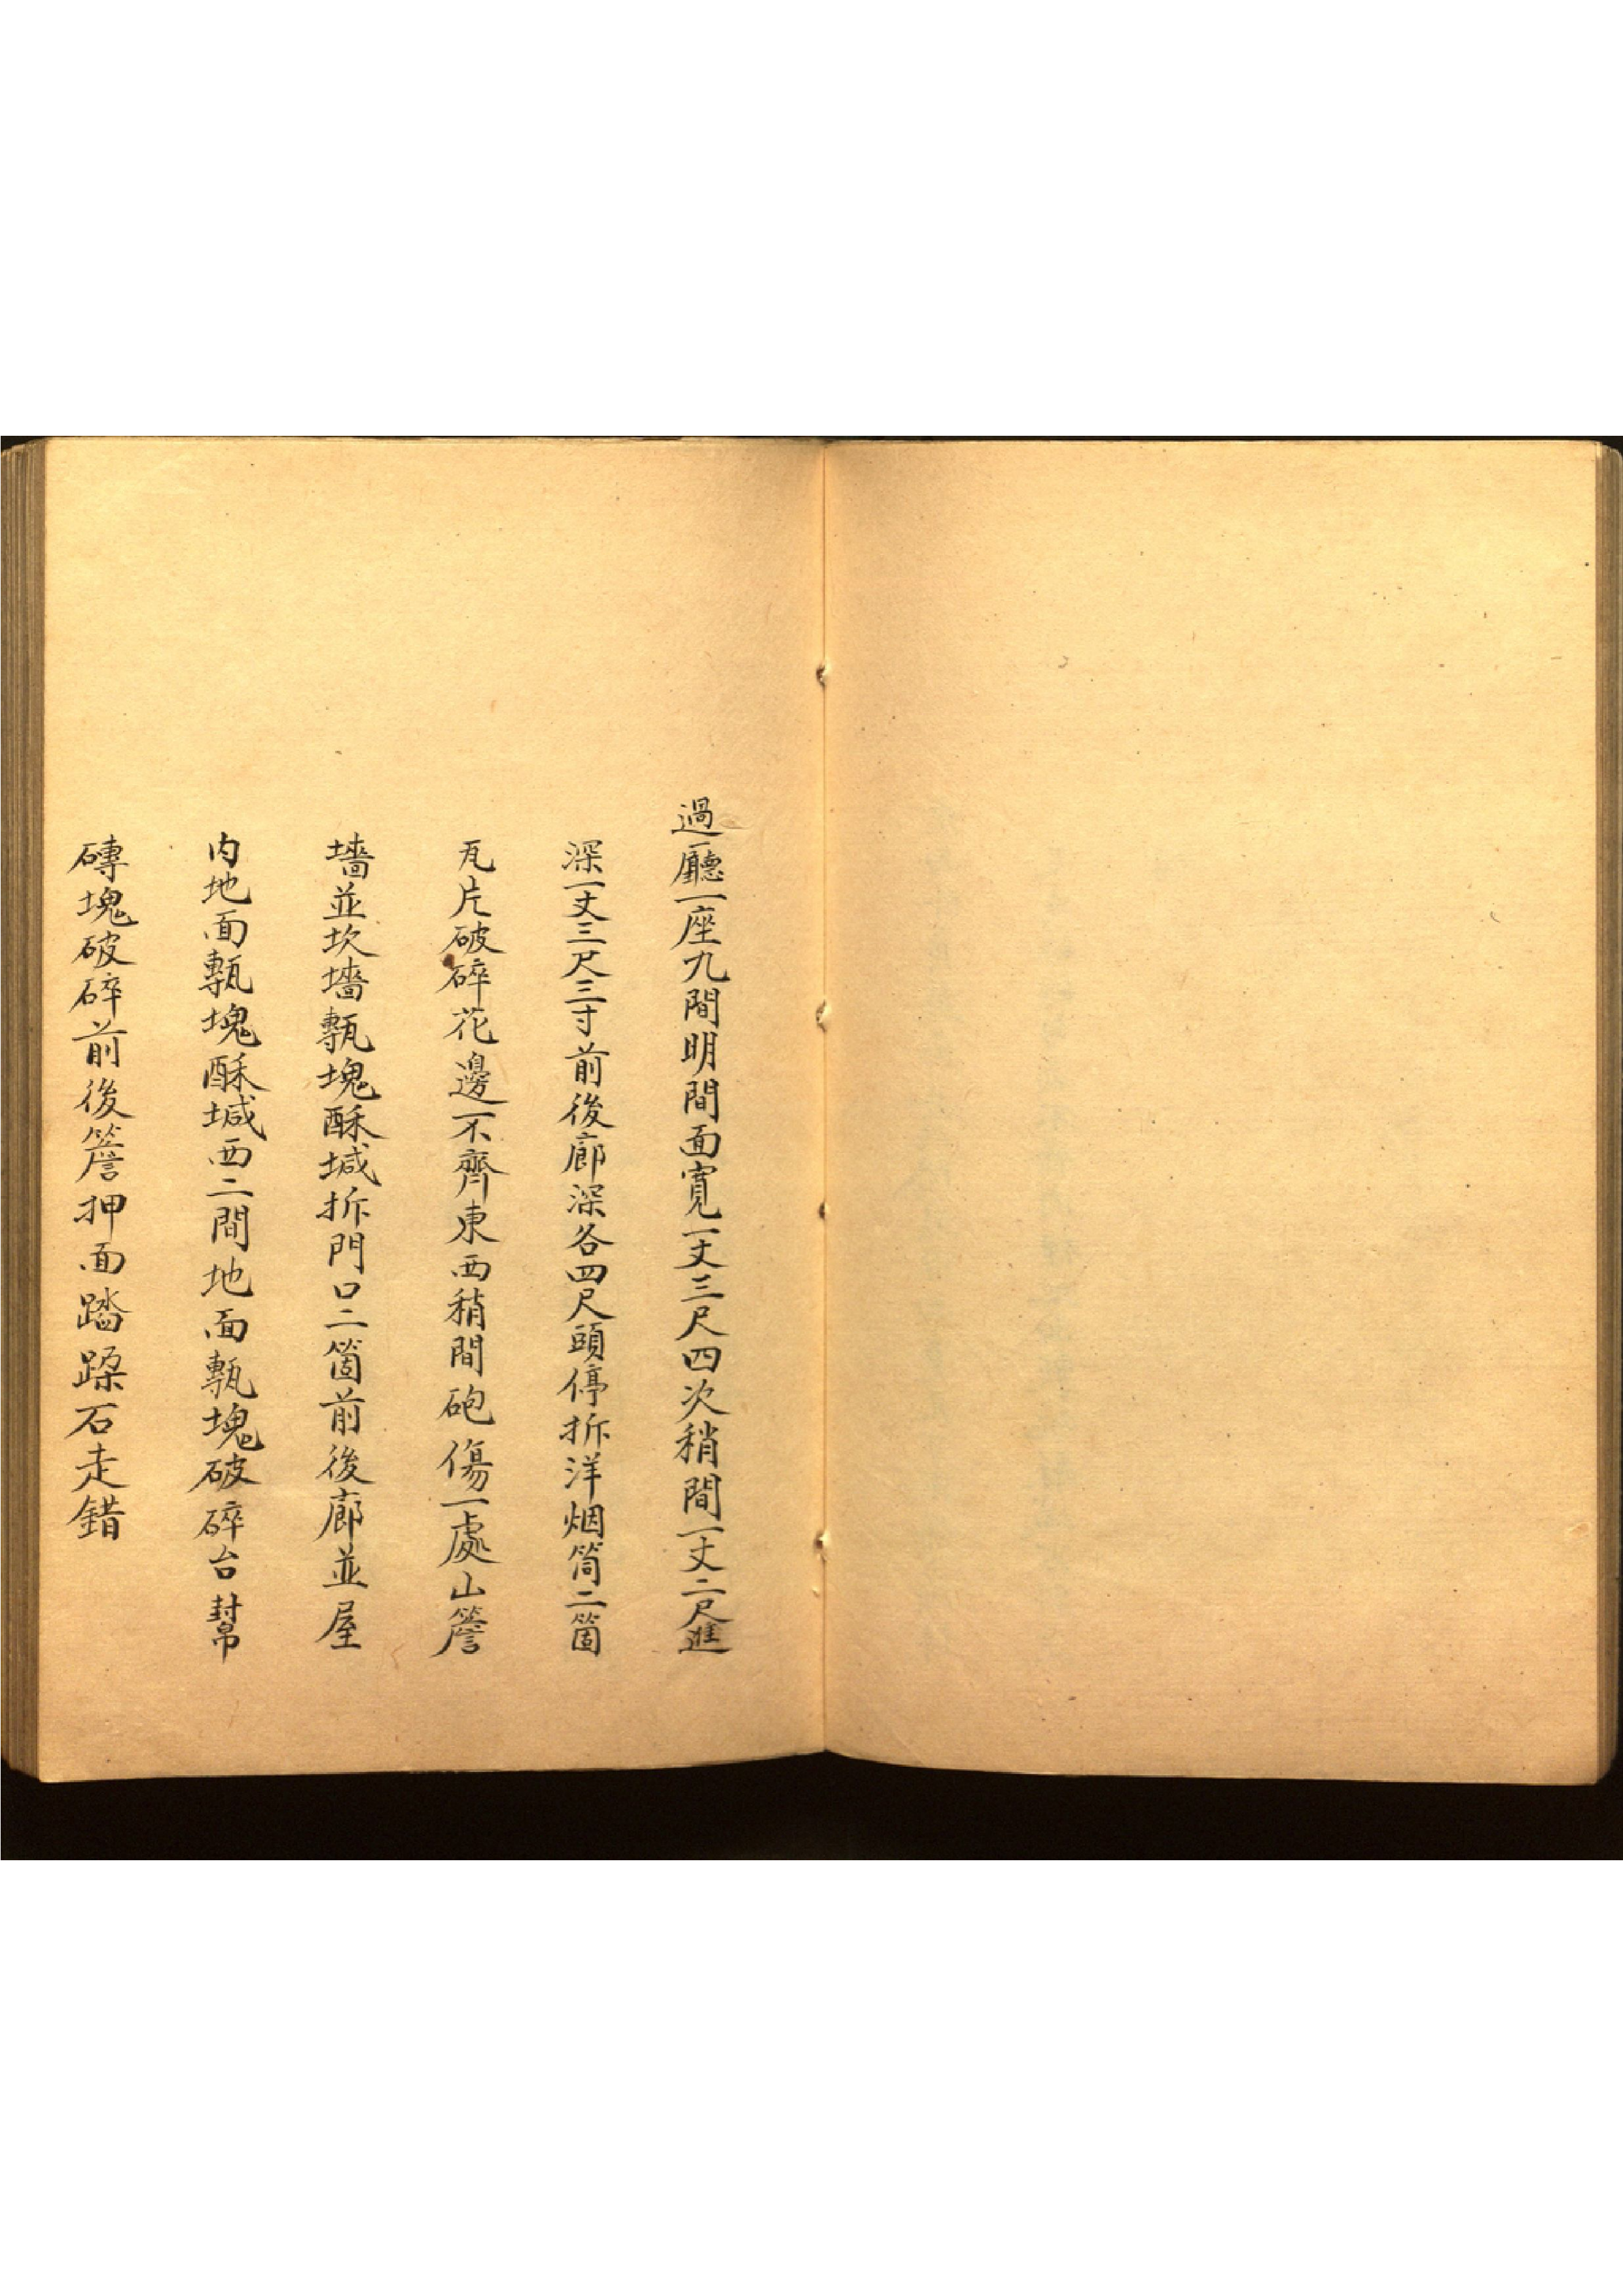 過廳一座九間明間面寬一丈三尺四次稍間一丈二尺進
深一丈三尺三寸前後廊深各四尺頭停拆洋烟筒二箇
瓦片破碎花邊不齊東西稍間砲傷一處山簷
墻並坎墻甎塊酥堿拆門口二箇前後廊並屋
内地面甎塊酥堿西二間地面甎塊破碎台幫
磚塊破碎前後簷押面踏跺石走錯